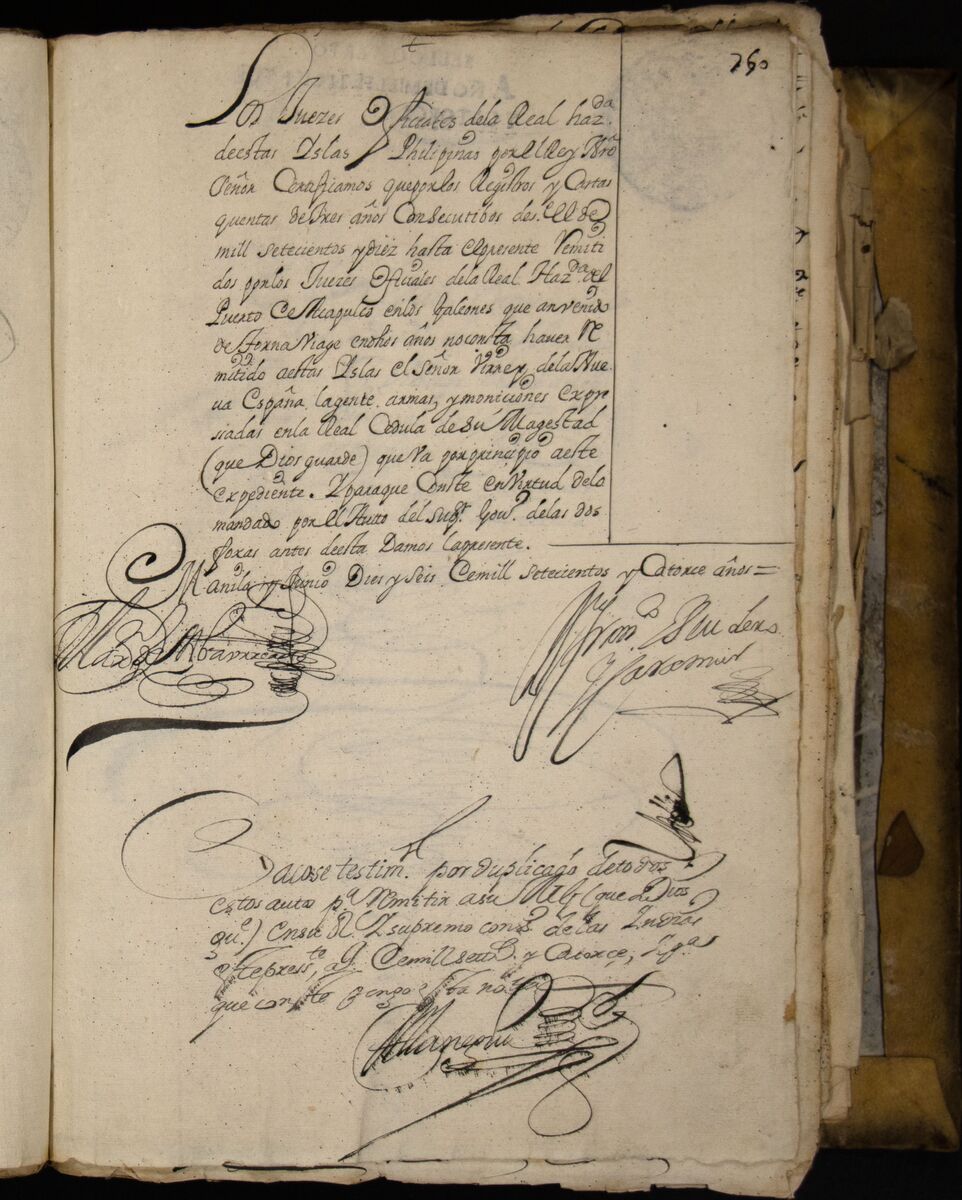 250
Los Juezes Officiales dela Real haz.da
deestas Yslas Philipinas por el Rey Nro
Señor Certificamos que por los Registros y Cartas
quentas de tres años Consecutibos des.e el de
mill setecientos y diez hasta el presente Remiti
dos por los Juezes Oficiales dela Real Haz.da del
Puerto de Acapulco en los Galeones que an venido
de torna Viage en dhos años no consta haver Re
mitido aestas Yslas el Señor Virrey dela Nue
va España lagente armas y moniciones Expre
siadas enla Real Cedula de Su Magestad
(que Dios guarde) que Va por principio aeste
expediente. Y paraque Conste en Virtud delo
mandado por el Autto del Sup.r Gov.o delas dos
foxas antes deesta Damos la presente.
Manila y Junio Dies y seis de mill setecientos y Catorce años =
Diose testim.o por duplicado de todos
estos autos p.a Remitir a su Mag (que Dios
gu.e) en su R.l Y supremo cons.o de las Indias
este press.te a.o de mill sett.s y Catorce, y p.a
que conste pongo esta nota